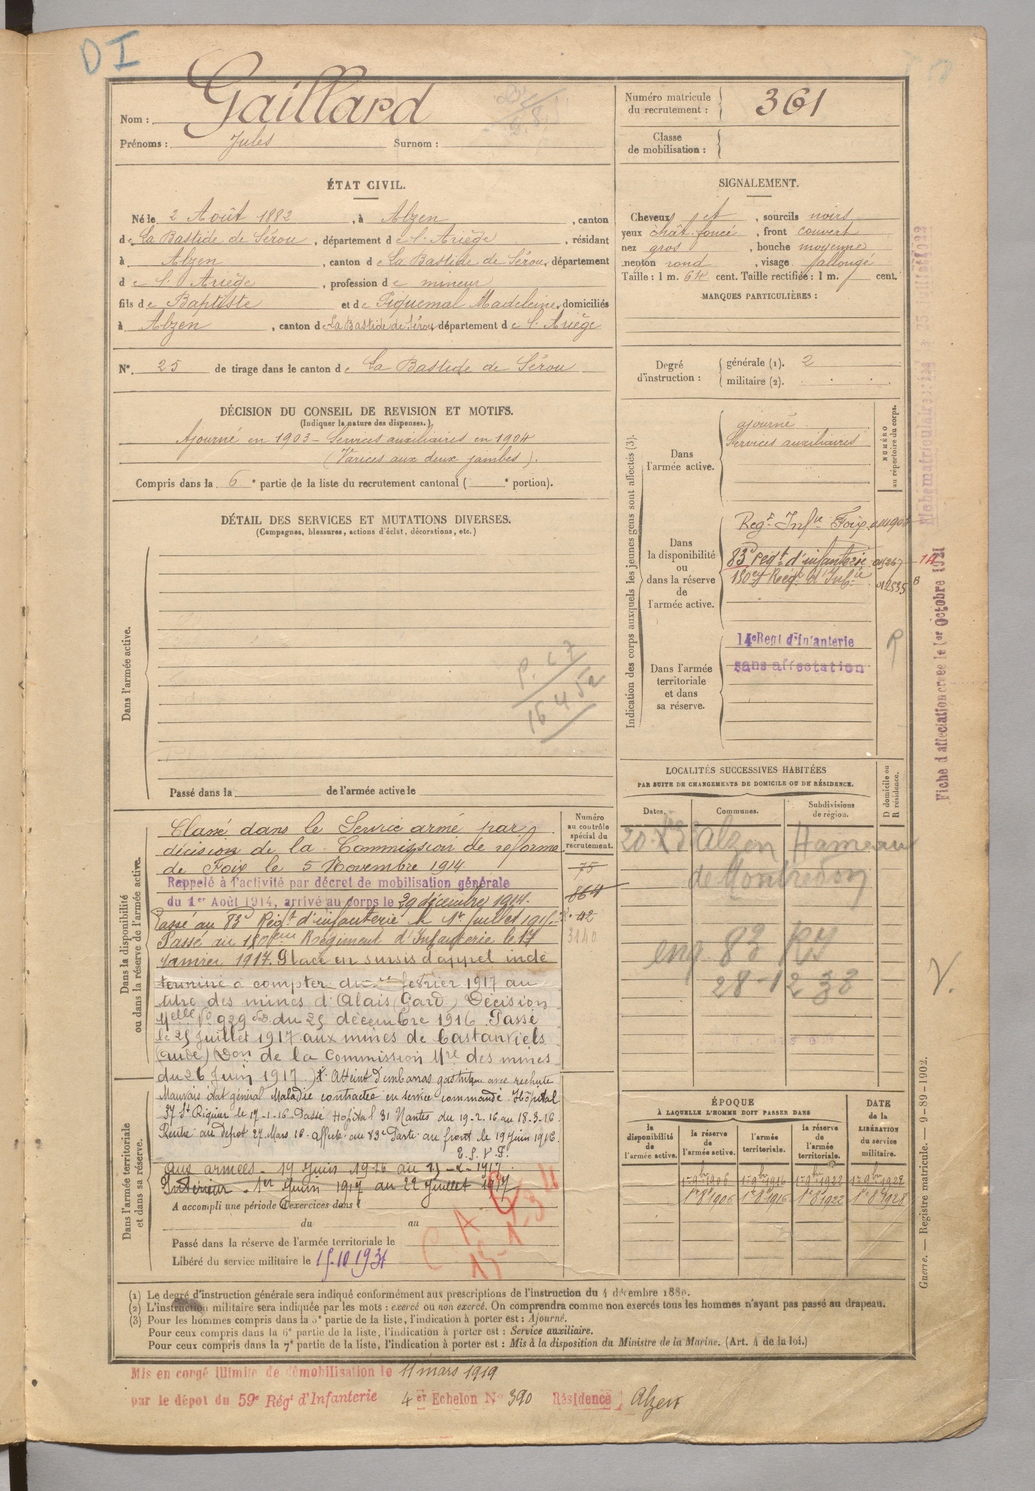 DI
Nom : Gaillard
Prénoms : Jules Surnom :
Numéro matricule du recrutement : 361
Classe de mobilisation :
ÉTAT CIVIL.
Né le 2 Août 1882, à Alzen, canton
de La Bastide de Sérou, département de l'Ariège, résidant
à Alzen, canton de La Bastide de Sérou, département
de l'Ariège, profession de mineur
fils de Baptiste et de Piquemal Madeleine, domiciliés
à Alzen, canton de La Bastide de Sérou département de l'Ariège
N° 25 de tirage dans le canton de La Bastide de Sérou
DÉCISION DU CONSEIL DE REVISION ET MOTIFS.
(Indiquer la nature des dispenses.)
Ajourné en 1903 - Services auxiliaires en 1904
(Varices aux deux jambes).
Compris dans la 6e partie de la liste du recrutement cantonal ( e portion).
SIGNALEMENT.
Cheveux jet, sourcils noirs
yeux chât. foncé, front couvert
nez gros, bouche moyenne
menton rond, visage allongé
Taille : 1 m. 64 cent. Taille rectifiée : 1 m. cent.
MARQUES PARTICULIÈRES :
Degré d'instruction : générale (1). 2
militaire (2).
DÉTAIL DES SERVICES ET MUTATIONS DIVERSES.
(Campagnes, blessures, actions d'éclat, décorations, etc.)
Dans l'armée active.
P. 67
16 4 52
Passé dans la de l'armée active le
Indication des corps auxquels les jeunes gens sont affectés (3).
NUMÉRO au répertoire du corps.
Dans l'armée active.
ajourné
Services auxiliaires
Dans la disponibilité ou dans la réserve de l'armée active.
Regt Infie Foix
83e Régt d'infanterie
180e Régt d'Infie
Dans l'armée territoriale et dans sa réserve.
14e Regt d'Infanterie
sans affectation
Fiche d'affectation créée le 1er Octobre 1921
LOCALITÉS SUCCESSIVES HABITÉES
PAR SUITE DE CHANGEMENTS DE DOMICILE OU DE RÉSIDENCE.
Dates. Communes. Subdivisions de région. Domicile ou Résidence.
Alzen Hameau
de Montredon
28-12 38
Dans la disponibilité ou dans la réserve de l'armée active.
Numéro au contrôle spécial du recrutement.
75
864
3140
Classé dans le Service armé par
décision de la Commission de réforme
de Foix le 5 Novembre 1914
Rappelé à l'activité par décret de mobilisation générale
du 1er Août 1914, arrivé au corps le 29 décembre 1914.
Passé au 83e Régt d'infanterie le 1er Juillet 1916
Passé au 180eme Régiment d'Infanterie le 17
Janvier 1917. Placé en sursis d'appel indé
terminé à compter du 1er février 1917 au
titre des mines d'Alais Gard, Décision
Melle No 929 du 25 décembre 1916. Passé
le 25 Juillet 1917 aux mines de Castanviels
(Aude) Don de la Commission Mre des mines
du 26 Juin 1917. Atteint d'embarras gastrique avec rechute
Mauvais état général Maladie contractée en service commandé Hôpital
37 St Riquier le 17-1-16 Passé Hôpital 31 Nantes du 19-2-16 au 18-3-16
Rentré au dépôt 27 Mars 16 - Affecté au 83e Parti au front le 19 Juin 1916
Dans l'armée territoriale et dans sa réserve.
Aux armées - 19 Juin 1916 au
Intérieur - 1er Juin 1917 au 22 Juillet 1917
A accompli une période d'exercices dans l
du au
Passé dans la réserve de l'armée territoriale le
Libéré du service militaire le 15.10.1931
ÉPOQUE
À LAQUELLE L'HOMME DOIT PASSER DANS
la disponibilité de l'armée active. la réserve de l'armée active. l'armée territoriale. la réserve de l'armée territoriale.
DATE de la LIBÉRATION du service militaire.
1er 8bre 1906 1er 8bre 1916 1er 8bre 1922 1er 8bre 1928
Guerre. — Registre matricule. — 9-89-1902.
(1) Le degré d'instruction générale sera indiqué conformément aux prescriptions de l'instruction du 4 décembre 1889.
(2) L'instruction militaire sera indiquée par les mots : exercé ou non exercé. On comprendra comme non exercés tous les hommes n'ayant pas passé au drapeau.
(3) Pour les hommes compris dans la 5e partie de la liste, l'indication à porter est : Ajourné.
Pour ceux compris dans la 6e partie de la liste, l'indication à porter est : Service auxiliaire.
Pour ceux compris dans la 7e partie de la liste, l'indication à porter est : Mis à la disposition du Ministre de la Marine. (Art. 4 de la loi.)
Mis en congé illimité de démobilisation le 11 mars 1919
par le dépôt du 59e Régt d'Infanterie 4e Echelon N° 390 Résidence Alzen